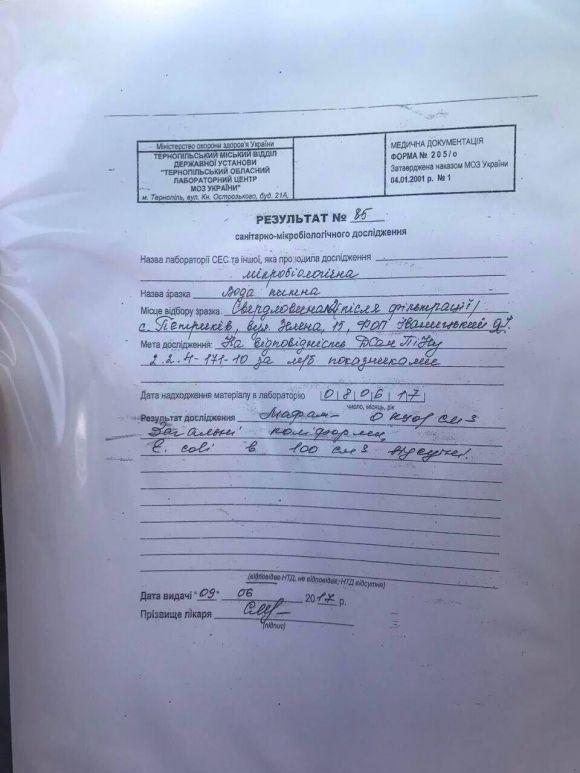 Міністерство охорони здоров'я України
ТЕРНОПІЛЬСЬКИЙ МІСЬКИЙ ВІДДІЛ
ДЕРЖАВНОЇ УСТАНОВИ
"ТЕРНОПІЛЬСЬКИЙ ОБЛАСНИЙ
ЛАБОРАТОРНИЙ ЦЕНТР
МОЗ УКРАЇНИ"
м. Тернопіль, вул. Кн. Острозького, буд. 21А,
МЕДИЧНА ДОКУМЕНТАЦІЯ
ФОРМА № 205/о
Затверджена наказом МОЗ України
04.01.2001 р. № 1
РЕЗУЛЬТАТ № 85
санітарно-мікробіологічного дослідження
Назва лабораторії СЕС та іншої, яка проводила дослідження
мікробіологічна
Назва зразка Вода питна
Місце відбору зразка Свердловина після фільтрації/
с. Петриків, вул. Зелена, ФОП
Мета дослідження: На відповідність ДСанПіНу
2.2.4-171-10 за м/б показниками
Дата надходження матеріалу в лабораторію 080617
число, місяць, рік
Результат дослідження Мафам- 0 куо/см3
Загальні коліформи,
E. coli в 100 см3 відсутні.
(відповідає НТД, не відповідає; НТД відсутня)
Дата видачі "09" 06 2017 р.
Прізвище лікаря
(підпис)